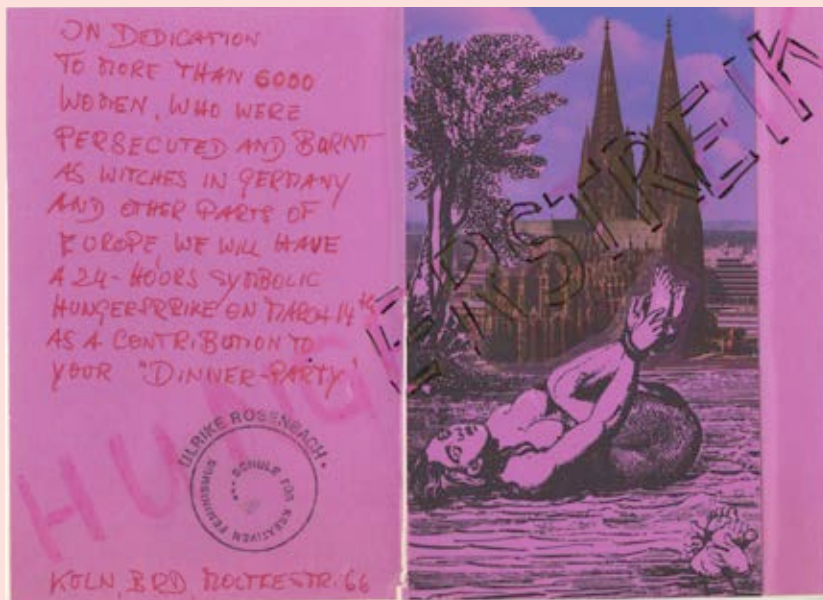 IN DEDICATION
TO MORE THAN 6000
WOMEN, WHO WERE
PERSECUTED AND BURNT
AS WITCHES IN GERMANY
AND OTHER PARTS OF
EUROPE, WE WILL HAVE
A 24-HOURS SYMBOLIC
HUNGERSRRIKE ON MARCH 14th
AS A CONTRIBUTION TO
YOUR "DINNER-PARTY"
HUNGERSTREIK
ULRIKE ROSENBACH •
••• SCHULE FÜR KREATIVEN FEMINISMUS
KÖLN, BRD, MOLTKESTR. 66